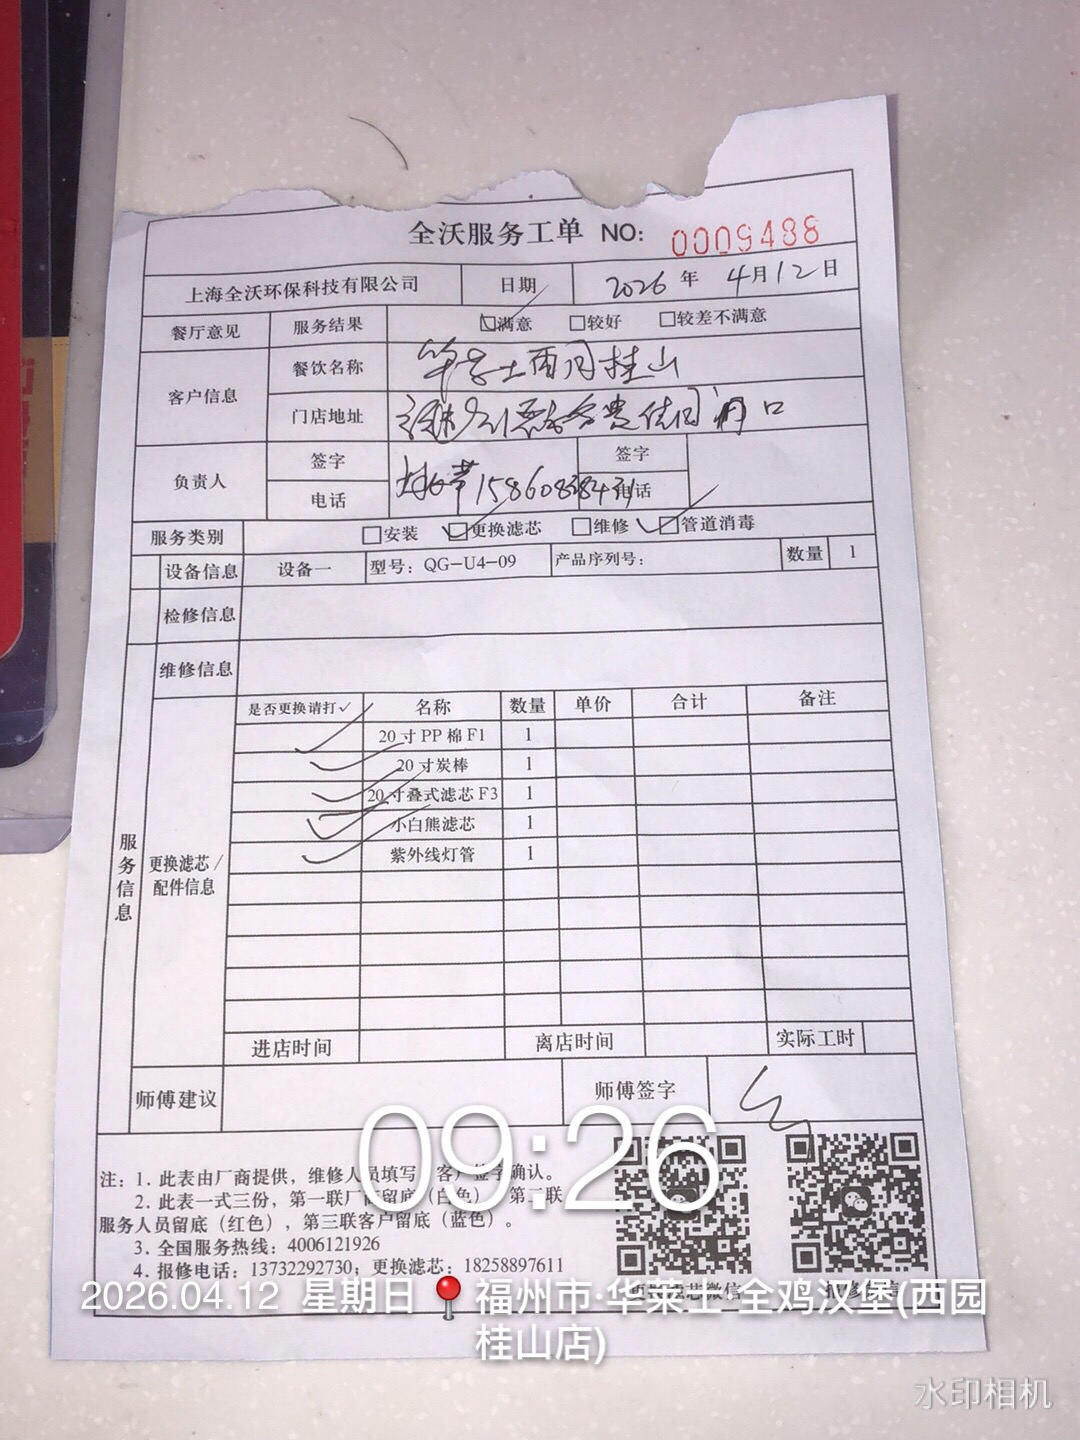 全沃服务工单 NO: 0009488
上海全沃环保科技有限公司 日期 2026年 4月12日
餐厅意见 服务结果 ☑满意 □较好 □较差不满意
客户信息 餐饮名称 华莱士西园桂山
门店地址 门口
负责人 签字 签字
电话 电话
服务类别 □安装 ☑更换滤芯 □维修 ☑管道消毒
设备信息 设备一 型号：QG-U4-09 产品序列号： 数量 1
检修信息
维修信息
是否更换请打✓ 名称 数量 单价 合计 备注
✓ 20寸PP棉F1 1
✓ 20寸炭棒 1
✓ 20寸叠式滤芯F3 1
✓ 小白熊滤芯 1
✓ 紫外线灯管 1
服务信息
更换滤芯/
配件信息
进店时间 离店时间 实际工时
师傅建议 师傅签字
09:26
注：1. 此表由厂商提供，维修人员填写，客户签字确认。
2. 此表一式三份，第一联厂商留底（白色），第二联
服务人员留底（红色），第三联客户留底（蓝色）。
3. 全国服务热线：4006121926
4. 报修电话：13732292730；更换滤芯：18258897611
2026.04.12 星期日 福州市·华莱士·全鸡汉堡(西园
桂山店)
水印相机